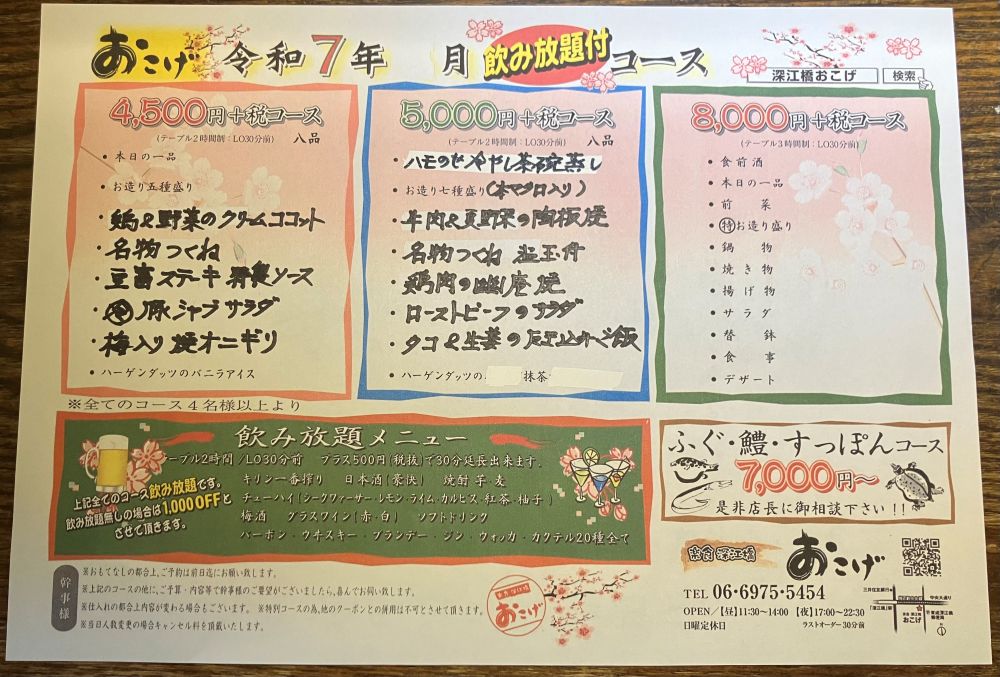 おこげ 令和7年 月 飲み放題付コース
深江橋おこげ 検索
4,500円+税コース
(テーブル2時間制:LO30分前) 八品
・本日の一品
・お造り五種盛り
・鶏&野菜のクリームココット
・名物つくね
・豆富ステーキ 特製ソース
・豚シャブサラダ
・梅入り焼オニギリ
・ハーゲンダッツのバニラアイス
5,000円+税コース
(テーブル2時間制:LO30分前) 八品
・ハモのせ冷やし茶碗蒸し
・お造り七種盛り(本マグロ入り)
・牛肉&夏野菜の陶板焼
・名物つくね 温玉付
・鶏肉の幽庵焼
・ローストビーフのサラダ
・タコ&生姜の釜飯
・ハーゲンダッツの 抹茶
8,000円+税コース
(テーブル3時間制:LO30分前)
・食前酒
・本日の一品
・前 菜
・㊕お造り盛り
・鍋 物
・焼き物
・揚げ物
・サラダ
・替 鉢
・食 事
・デザート
※全てのコース4名様以上より
飲み放題メニュー
テーブル2時間/LO30分前 プラス500円(税抜)で30分延長出来ます.
キリン一番搾り 日本酒(豪快) 焼酎 芋・麦
チューハイ(シークヮーサー・レモン・ライム・カルピス・紅茶・柚子)
梅酒 グラスワイン(赤・白) ソフトドリンク
バーボン・ウヰスキー・ブランデー・ジン・ウォッカ・カクテル20種全て
上記全てのコース飲み放題です。
飲み放題無しの場合は1,000OFFと
させて頂きます。
ふぐ・鱧・すっぽんコース
7,000円~
是非店長に御相談下さい!!
幹事様
※おもてなしの都合上、ご予約は前日迄にお願い致します。
※上記のコースの他に、ご予算・内容等で幹事様のご要望がございましたら、喜んでお伺い致します。
※仕入れの都合上内容が変わる場合もございます。 ※特別コースの為、他のクーポンとの併用は不可とさせて頂きます。
※当日人数変更の場合キャンセル料を頂戴いたします。
おこげ
楽食 深江橋 おこげ
TEL 06・6975・5454
OPEN/【昼】11:30~14:00 【夜】17:00~22:30
日曜定休日 ラストオーダー30分前
三井住友銀行
中央大通り
「深江橋」駅
おこげ